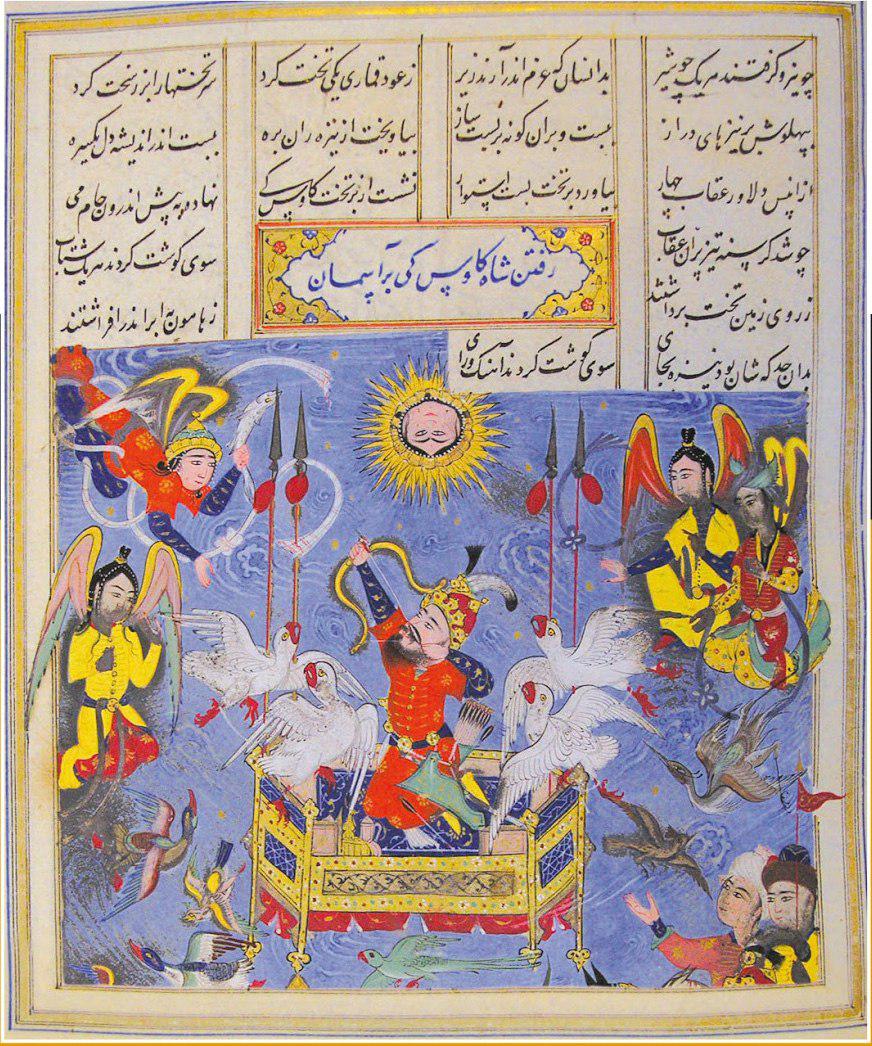 چو نیرو گرفتند هر یک چو شیر
بدانسان که غرم اندر آرند زیر
ز عود قماری یکی تخت کرد
سر تختها را بزر سخت کرد
بپهلوش بر نیزهای دراز
ببست و بران گونه بر بست ساز
بیاویخت از نیزه ران بره
ببست اندر اندیشه دل یکسره
ازانپس دلاور عقاب چهار
بیاورد بر تخت بست استوار
نشست از بر تخت کاوس کی
نهاده به پیش اندرون جام می
رفتن شاه کاوس کی بر آسمان
چو شد گرسنه تیز پران عقاب
سوی گوشت کردند هر یک شتاب
ز روی زمین تخت برداشتند
ز هامون به ابر اندر افراشتند
بدان حد که شان بود نیرو بجای
سوی گوشت کردند آهنگ و رای